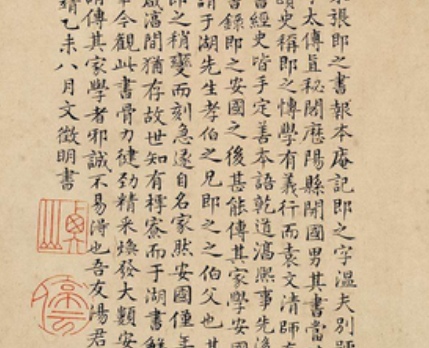 張即之書報本庵記即之字溫夫別
太傅直秘閣歷陽縣開國男其書當
史稱即之博學有義行而袁文清師
經史皆手定善本語乾道淳熙事先後
書錄即之安國之後甚能傳其家學安國
謂于湖先生孝伯之兄即之之伯父也其
即之稍變而刻急遂自名家然安國僅年
咸淳間猶存故世知有樗寮而于湖書鮮
今觀此書骨力健勁精采煥發大類安
謂傳其家學者邪誠不易得也吾友湯君
靖乙未八月文徵明書
停雲